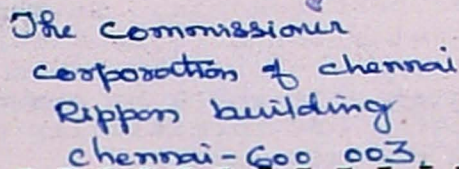 The commissioner
corporation of chennai
Rippon building
chennai-600 003.